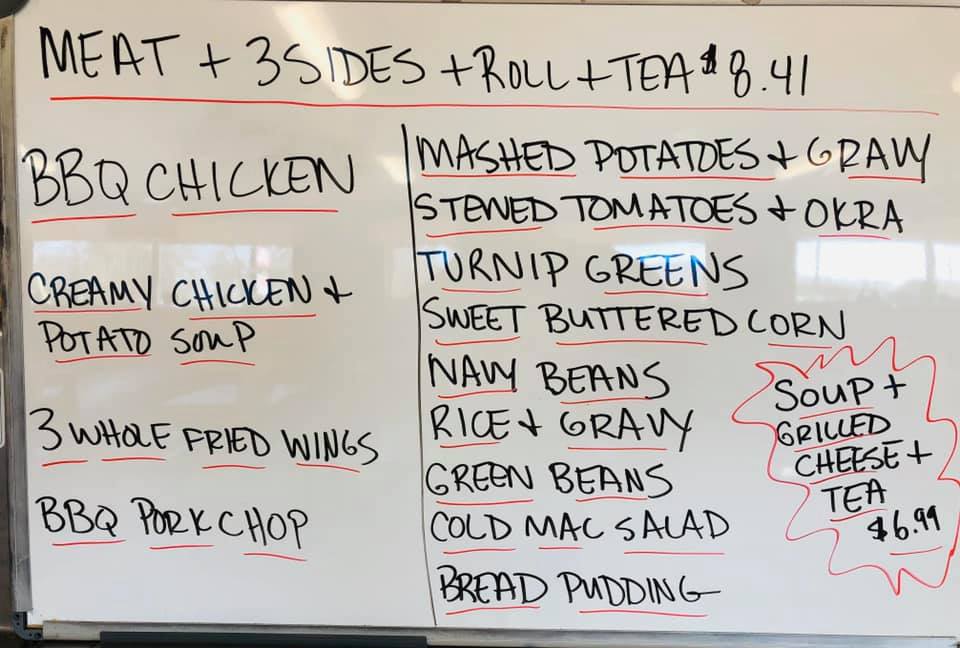 MEAT + 3 SIDES + ROLL + TEA $8.41
BBQ CHICKEN
CREAMY CHICKEN +
POTATO SOUP
3 WHOLE FRIED WINGS
BBQ PORK CHOP
MASHED POTATOES + GRAVY
STEWED TOMATOES + OKRA
TURNIP GREENS
SWEET BUTTERED CORN
NAVY BEANS
RICE + GRAVY
GREEN BEANS
COLD MAC SALAD
BREAD PUDDING
SOUP +
GRILLED
CHEESE +
TEA
$6.99